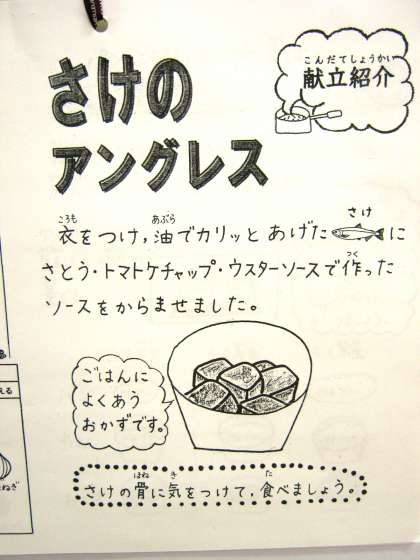 こんだてしょうかい
献立紹介
さけの
アングレス
ころも あぶら さけ
衣をつけ,油でカリッとあげたに
さとう・トマトケチャップ・ウスターソースで作った
つく
ソースをからませました。
ごはんに
よくあう
おかずです。
ほね き た
さけの骨に気をつけて,食べましょう。
える
ねぎ